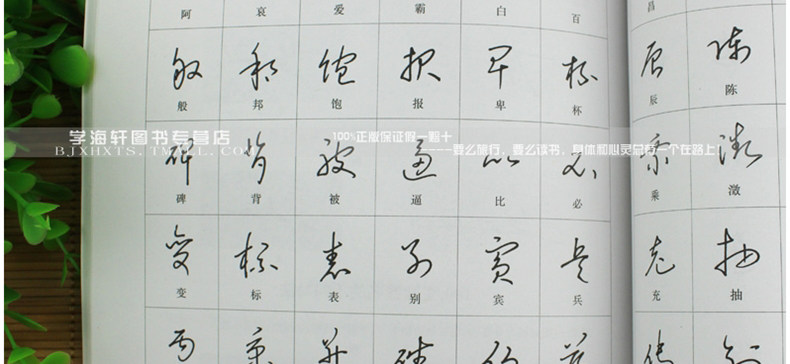 阿 哀 爱 霸 白 百 昌
般 邦 饱 报 卑 杯 辰 陈
学海轩图书专营店
BJXHXTS.TMALL.COM
100%正版保证假一赔十
----要么旅行，要么读书，身体和心灵总有一个在路上！
碑 背 被 逼 比 必 乘 澂
变 标 表 别 宾 兵 充 抽